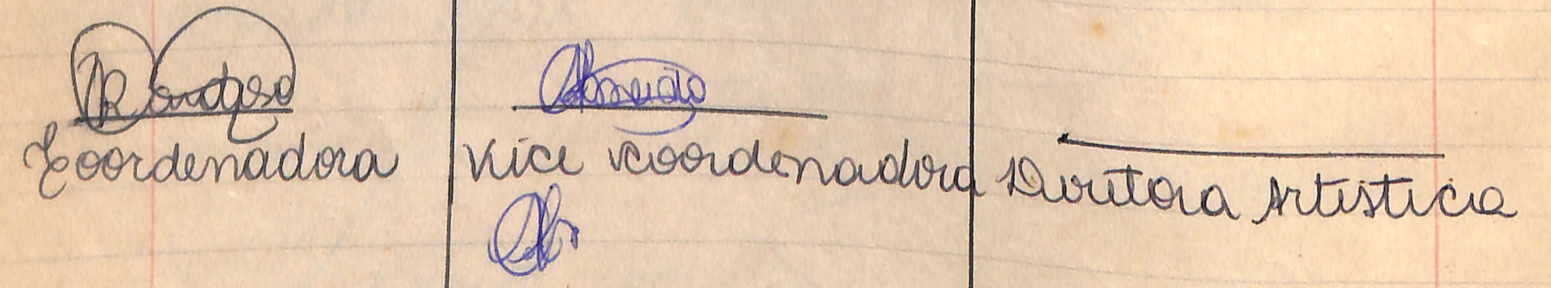 Coordenadora
Vice Coordenadora
Diretora Artistica